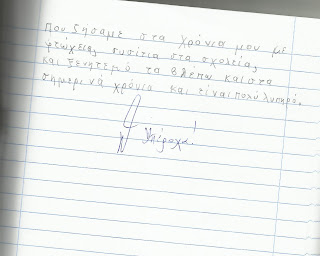 Που ζησαμε στα χρόνια μου με
φτώχειες συσίτια στα σχολείας
και ξενητεμό τα βλέπω και στα
σημερινά χρόνια και είναι πολύ λυπηρό.
Υπέροχα!